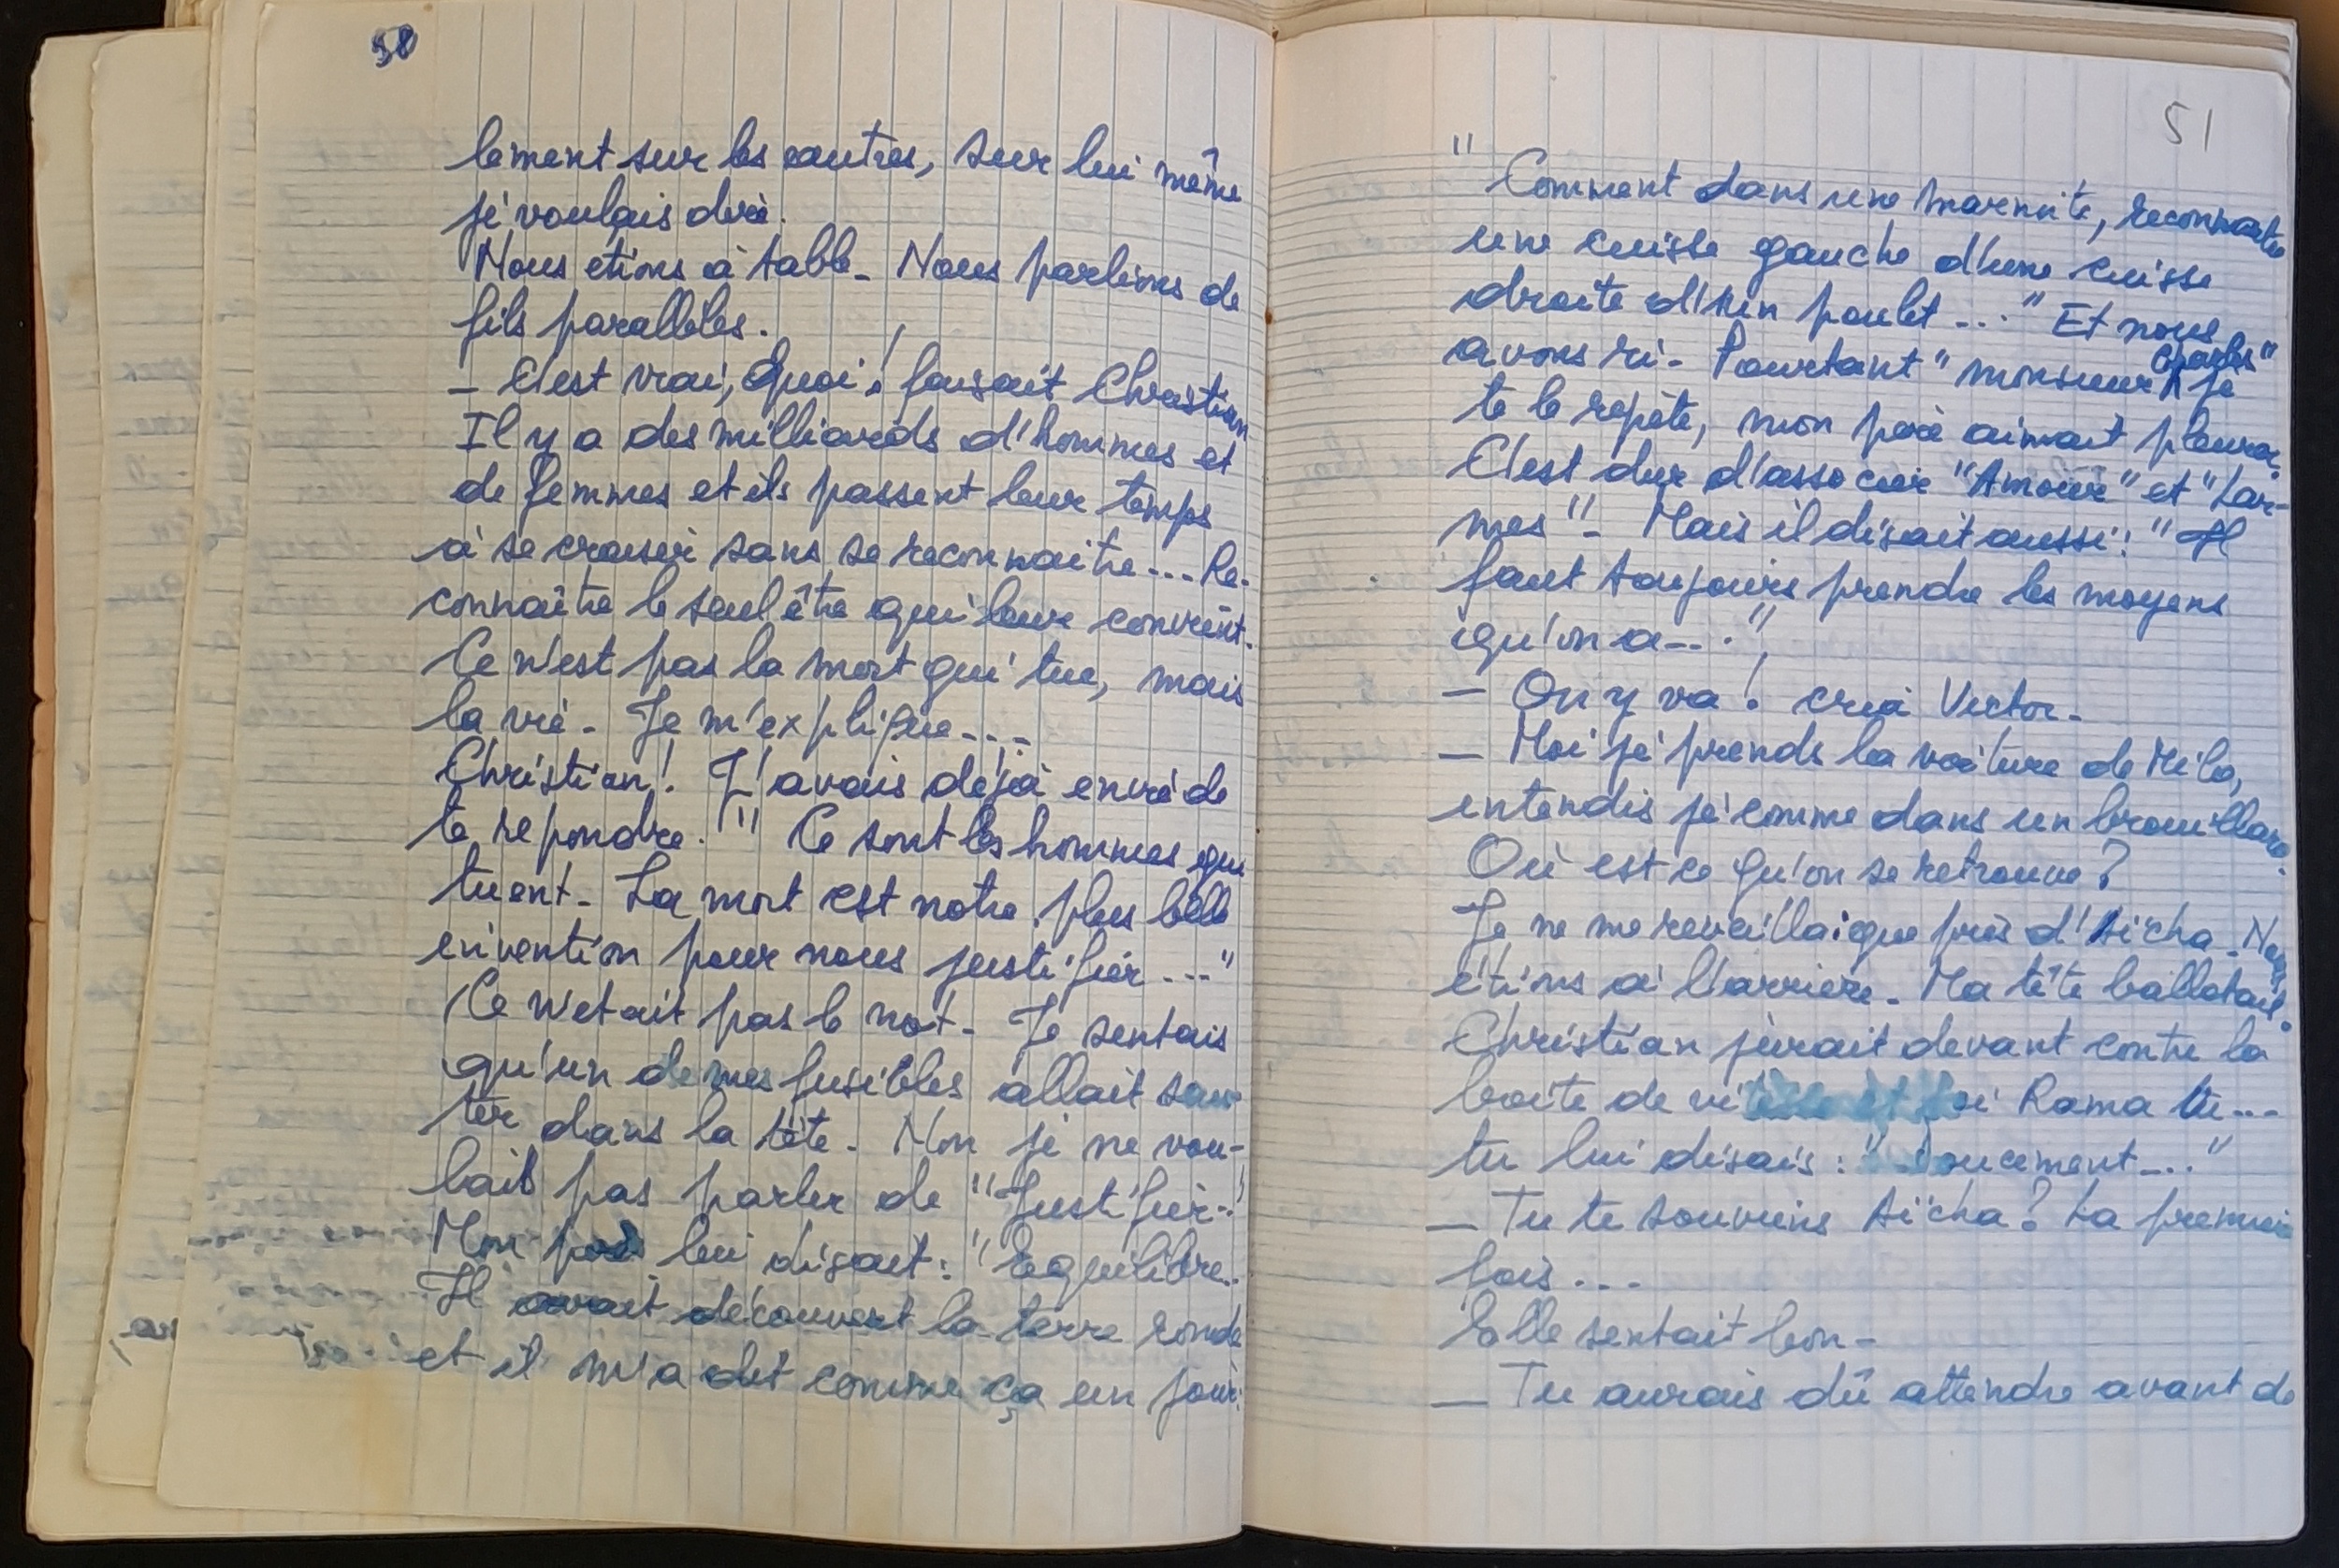 58
lement sur les autres, sur lui même
je voulais dire.
Nous etions à table - Nous parlions de
fils parallèles.
- C'est vrai, Quoi ! faisait Christian
Il y a des milliards d'hommes et
de femmes et ils passent leur temps
à se croiser sans se reconnaitre... Re-
connaître le seul être qui leur convient.
Ce n'est pas la mort qui tue, mais
la vie - Je m'explique...
Christian ! J'avais déjà envie de
te repondre. " Ce sont les hommes qui
tuent - La mort est notre plus belle
invention pour nous justifier..."
Ce n'etait pas le mot - Je sentais
qu'un de mes fusibles allait sau-
ter dans la tête - Non je ne vou-
lais pas parler de "Justifier."
Mon père lui disait : "Equilibre.
Il avait découvert la terre ronde
et il m'a dit comme ça un jour:
51
" Comment dans une marmite, reconnaitre
une cuisse gauche d'une cuisse
droite d'un poulet..." Et nous
avons ri - Pourtant "monsieur Charles" je
te le repète, mon père aimait pleurer.
C'est dur d'associer "Amour" et "Lar-
mes" - Mais il disait aussi : "Il
faut toujours prendre les moyens
qu'on a..."
- On y va ! cria Victor -
- Moi je prends la voiture de Mila,
entendis je comme dans un brouillard.
Où est ce qu'on se retrouve ?
Je ne me reveillai que près d'Aïcha - Nous
étions à l'arrière - Ma tête ballotait.
Christian jurait devant contre la
boite de vitesse et toi Rama tu...
tu lui disais : "doucement..."
- Tu te souviens Aïcha ? La premiere
fois...
Elle sentait bon -
- Tu aurais dû attendre avant de